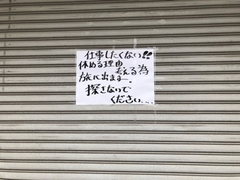 仕事したくない!!
休める理由
考える為
旅に出ます…
探さないで
ください....